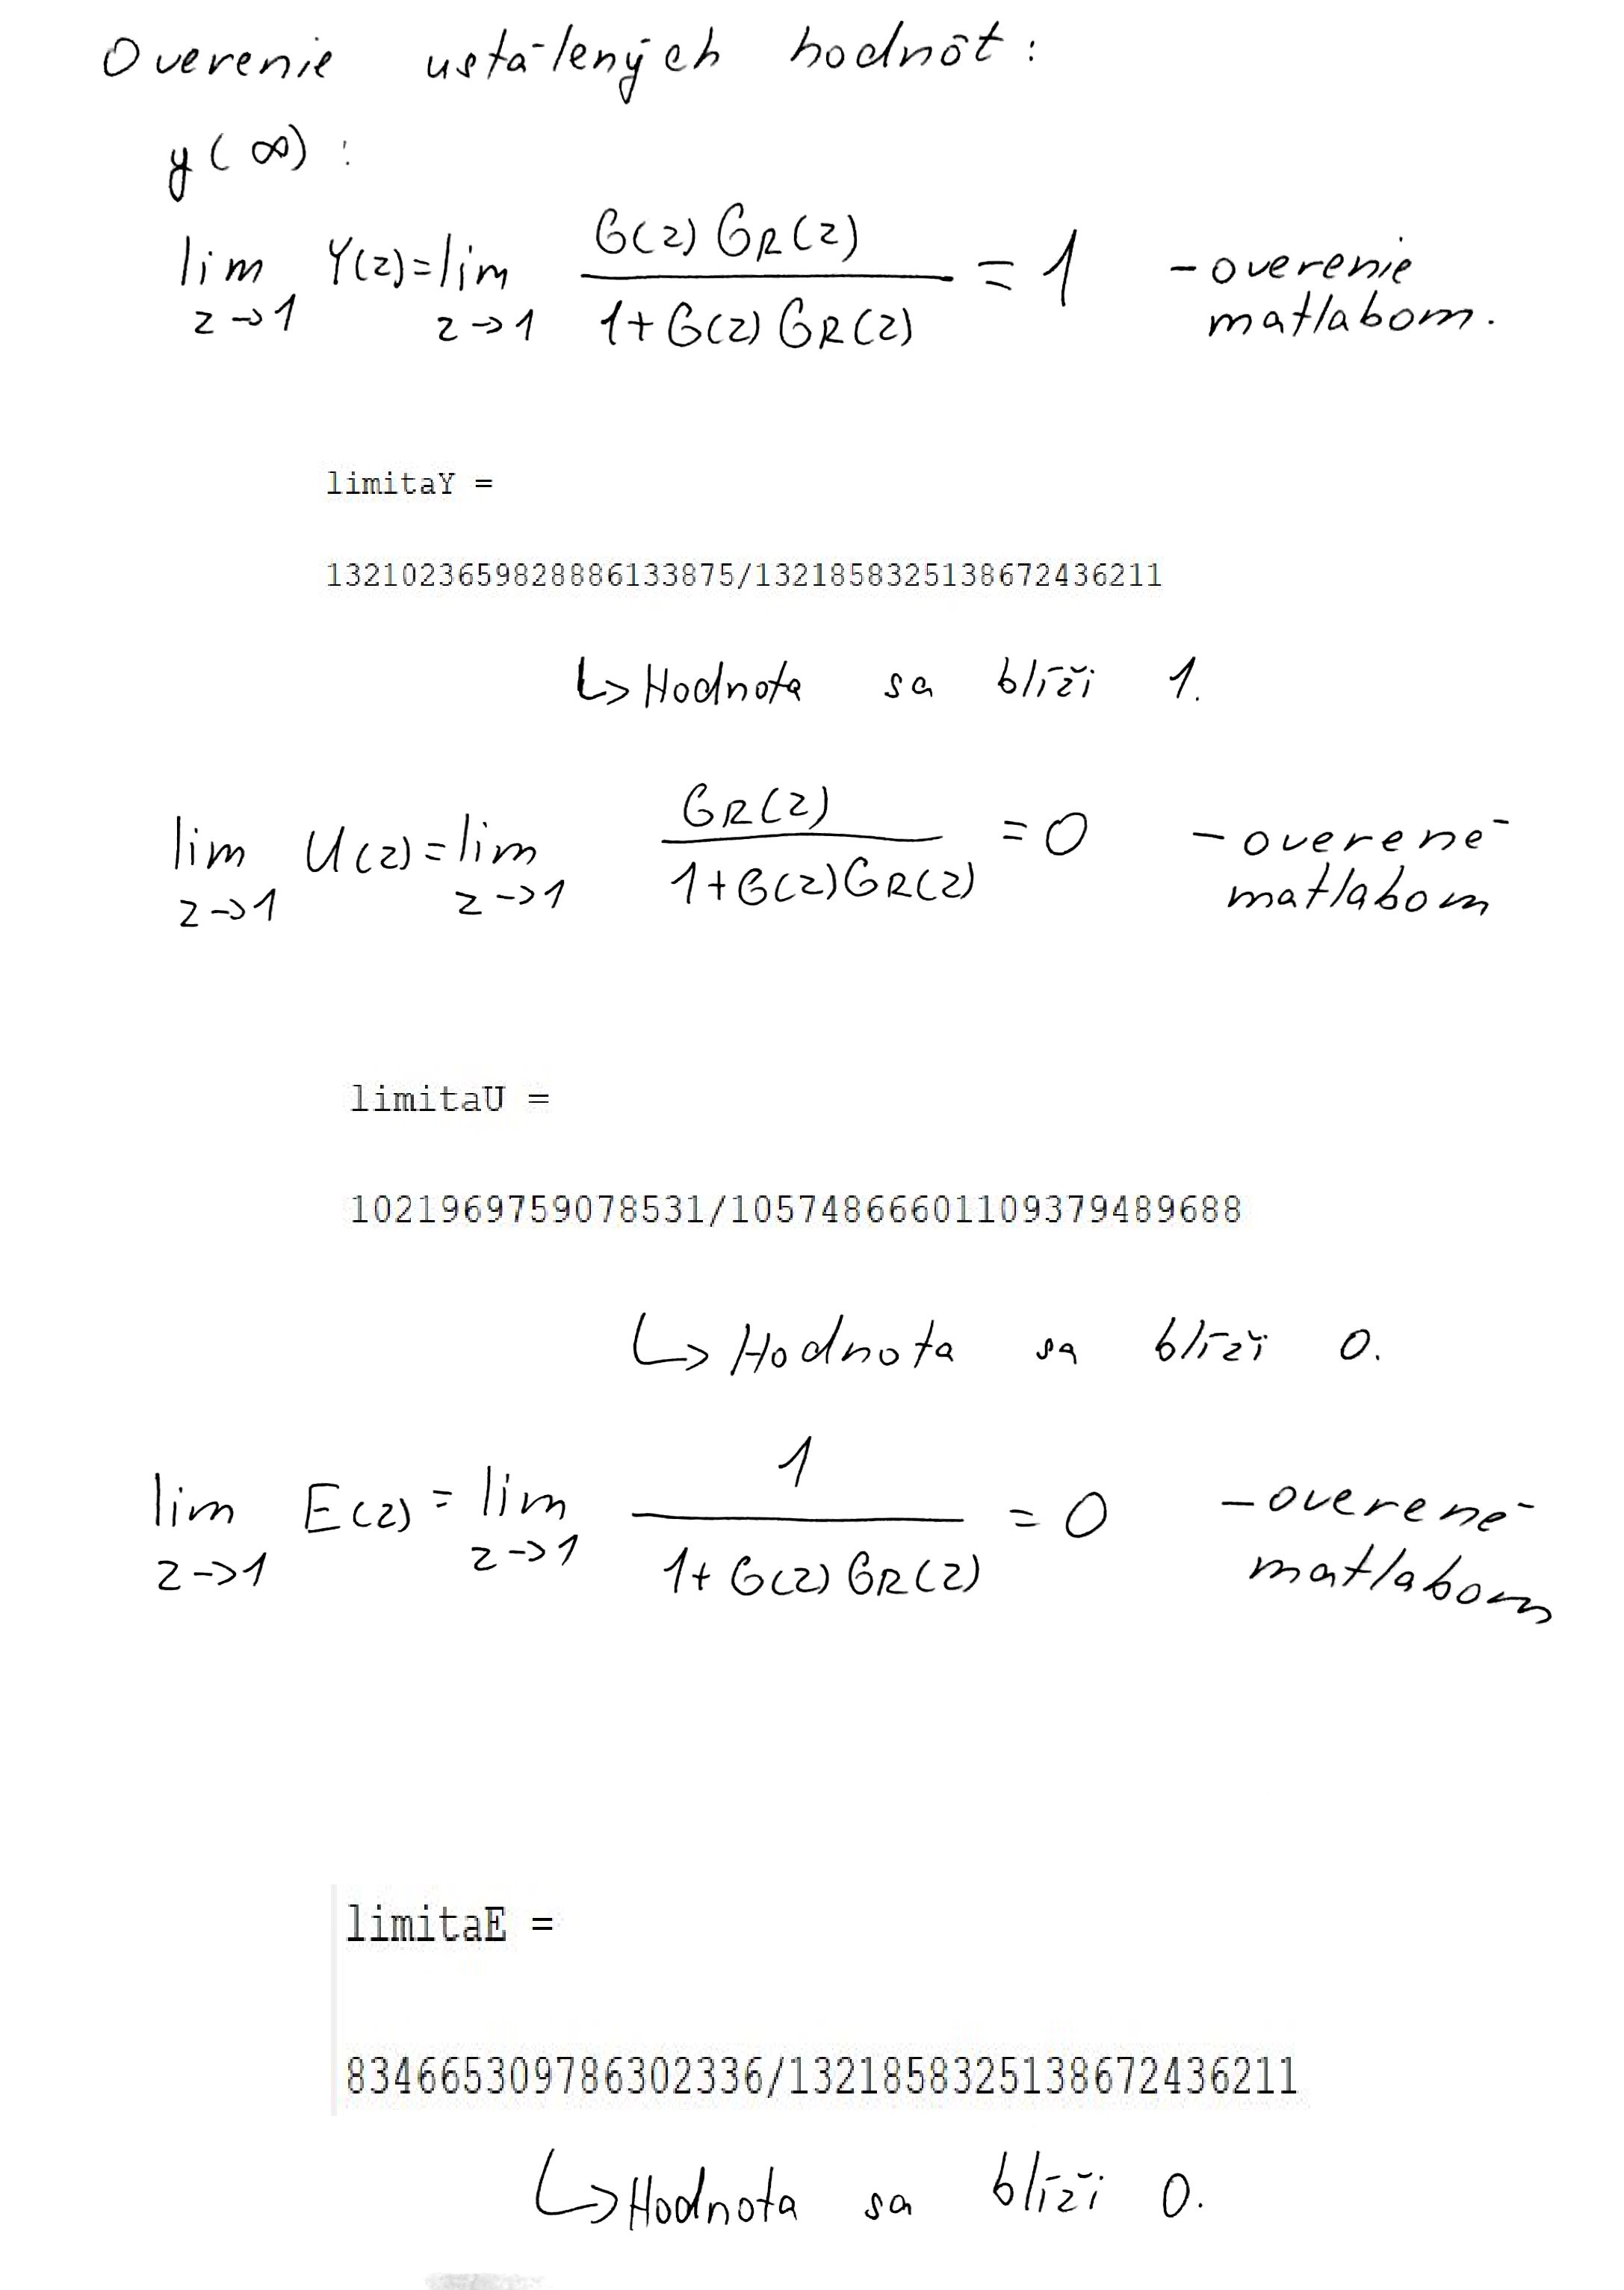 Overenie ustálených hodnôt:
y(∞):
lim z→1 Y(z)=lim z→1 G(z)GR(z) / 1+G(z)GR(z) = 1 -overenie matlabom.
limitaY =
1321023659828886133875/1321858325138672436211
↳ Hodnota sa blíži 1.
lim z→1 U(z)=lim z→1 GR(z) / 1+G(z)GR(z) = 0 -overené matlabom
limitaU =
1021969759078531/105748666011093794896​88
↳ Hodnota sa blíži 0.
lim z→1 E(z)=lim z→1 1 / 1+G(z)GR(z) = 0 -overené matlabom
limitaE =
834665309786302336/1321858325138672436211
↳ Hodnota sa blíži 0.